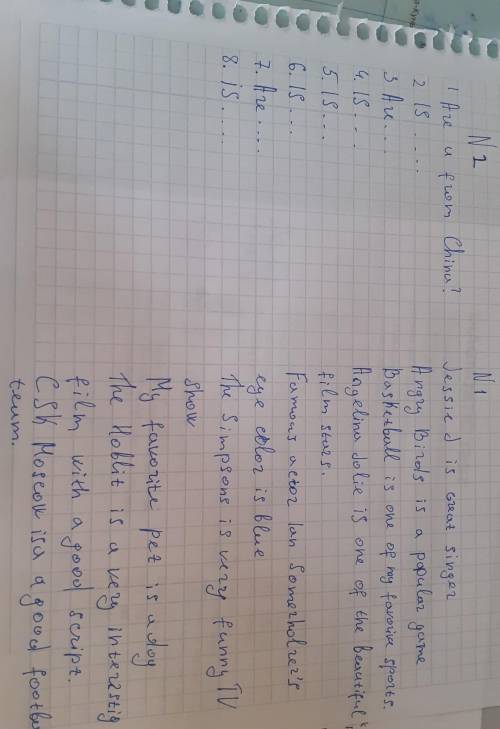 N 2
1 Are u from China?
2 IS ....
3 Are ...
4. IS ...
5. IS ...
6. IS ...
7. Are ....
8. iS ....
N 1
Jessie J is great singer
Angry Birds is a popular game
Basketball is one of my favorive sports.
Angelina Jolie is one of the beautiful
film stars.
Famous actor Ian Somerholzer's
eye color is blue
The Simpsons is very funny TV
show
My favorite pet is a dog
The Hobbit is a very interestig
film with a good script.
CSK Moscow is a a good footba
team.